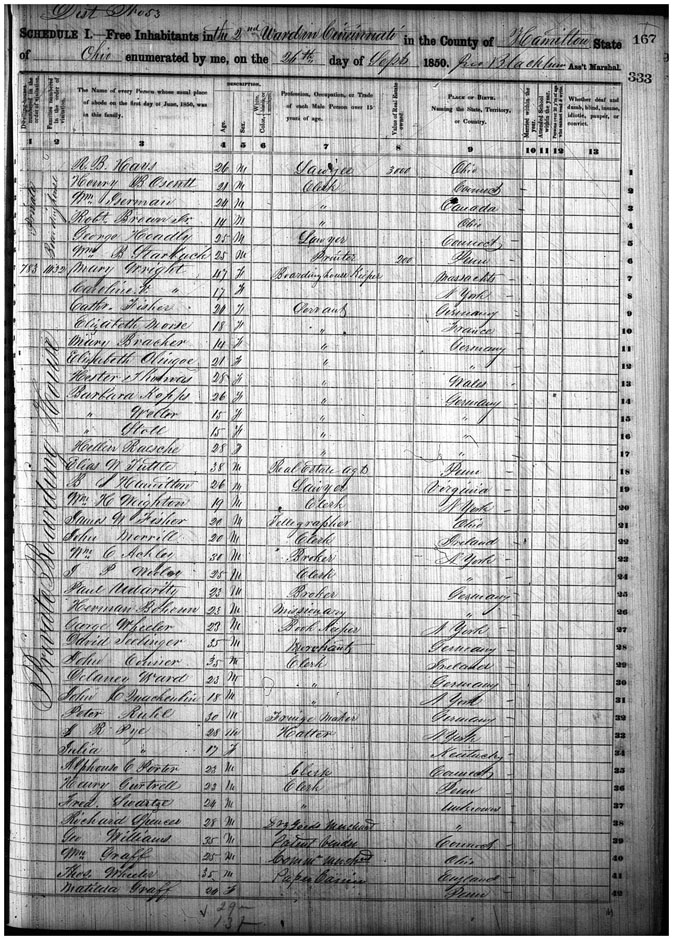 Dist No 53
SCHEDULE I.—Free Inhabitants in the 2nd Ward in Cincinnati in the County of Hamilton State 167
of Ohio enumerated by me, on the 26th day of Sept 1850. Ass't Marshal. 333
Dwelling-houses numbered in the order of visitation. Families numbered in the order of visitation. The Name of every Person whose usual place of abode on the first day of June, 1850, was in this family. DESCRIPTION. Age. Sex. Color. Profession, Occupation, or Trade of each Male Person over 15 years of age. Value of Real Estate owned. PLACE OF BIRTH. Naming the State, Territory, or Country. Married within the year. Attended School within the year. Whether deaf and dumb, blind, insane, idiotic, pauper, or convict.
1 2 3 4 5 6 7 8 9 10 11 12 13
R B Hays 26 M Lawyer 3000 Ohio 1
Henry B 21 M Clerk Connect 2
Wm 24 M " Canada 3
Robt Brown Jr 14 M " Ohio 4
George Hoadly 25 M Lawyer Connect 5
Wm B Starbuck 25 M Printer 200 Penn 6
783 1032 Mary Wright 47 F Boarding house Keeper Massachts 7
Caroline F " 17 F N York 8
Cath. Fisher 20 F Servant Germany 9
Elizabeth Morse 18 F " France 10
Mary Bracher 19 F " Germany 11
Elizabeth 21 F " " 12
Hester Thomas 28 F " Wales 13
Barbara Kopps 26 F " Germany 14
" Welter 15 F " " 15
" Stoll 15 F " " 16
Hellen 28 F " " 17
Elias W Tuttle 38 M Real Estate Agt Penn 18
Hamilton 26 M Lawyer Virginia 19
Wm H Weighton 19 M Clerk N York 20
James W Fisher 20 M Telegrapher Ohio 21
John Morrill 20 M Clerk Ireland 22
Wm C Ackles 30 M Broker N York 23
J P 25 M Clerk " 24
Paul 23 M Broker Germany 25
Herman 23 M Missionary " 26
George Wheeler 23 M Book Keeper N York 27
David 35 M Merchant Germany 28
John Conner 35 M Clerk Ireland 29
Delancy Ward 23 M " Germany 30
John 18 M " N York 31
Peter Ruhl 30 M Fringe Maker Germany 32
J R Pye 28 M Hatter N York 33
Julia " 17 F Kentucky 34
Alphonse C Porter 23 M Clerk Connect 35
Henry 22 M Clerk Penn 36
Fred. Swartze 24 M " Unknown 37
Richard Spencer 28 M Dry Goods Merchant " 38
Geo Williams 35 M Patent Connect 39
Wm Graff 25 M Comm Merchant Ohio 40
Thos. Wheeler 35 M Paper England 41
Matilda Graff 20 F Penn 42
Private Boarding House
29 m
13 f